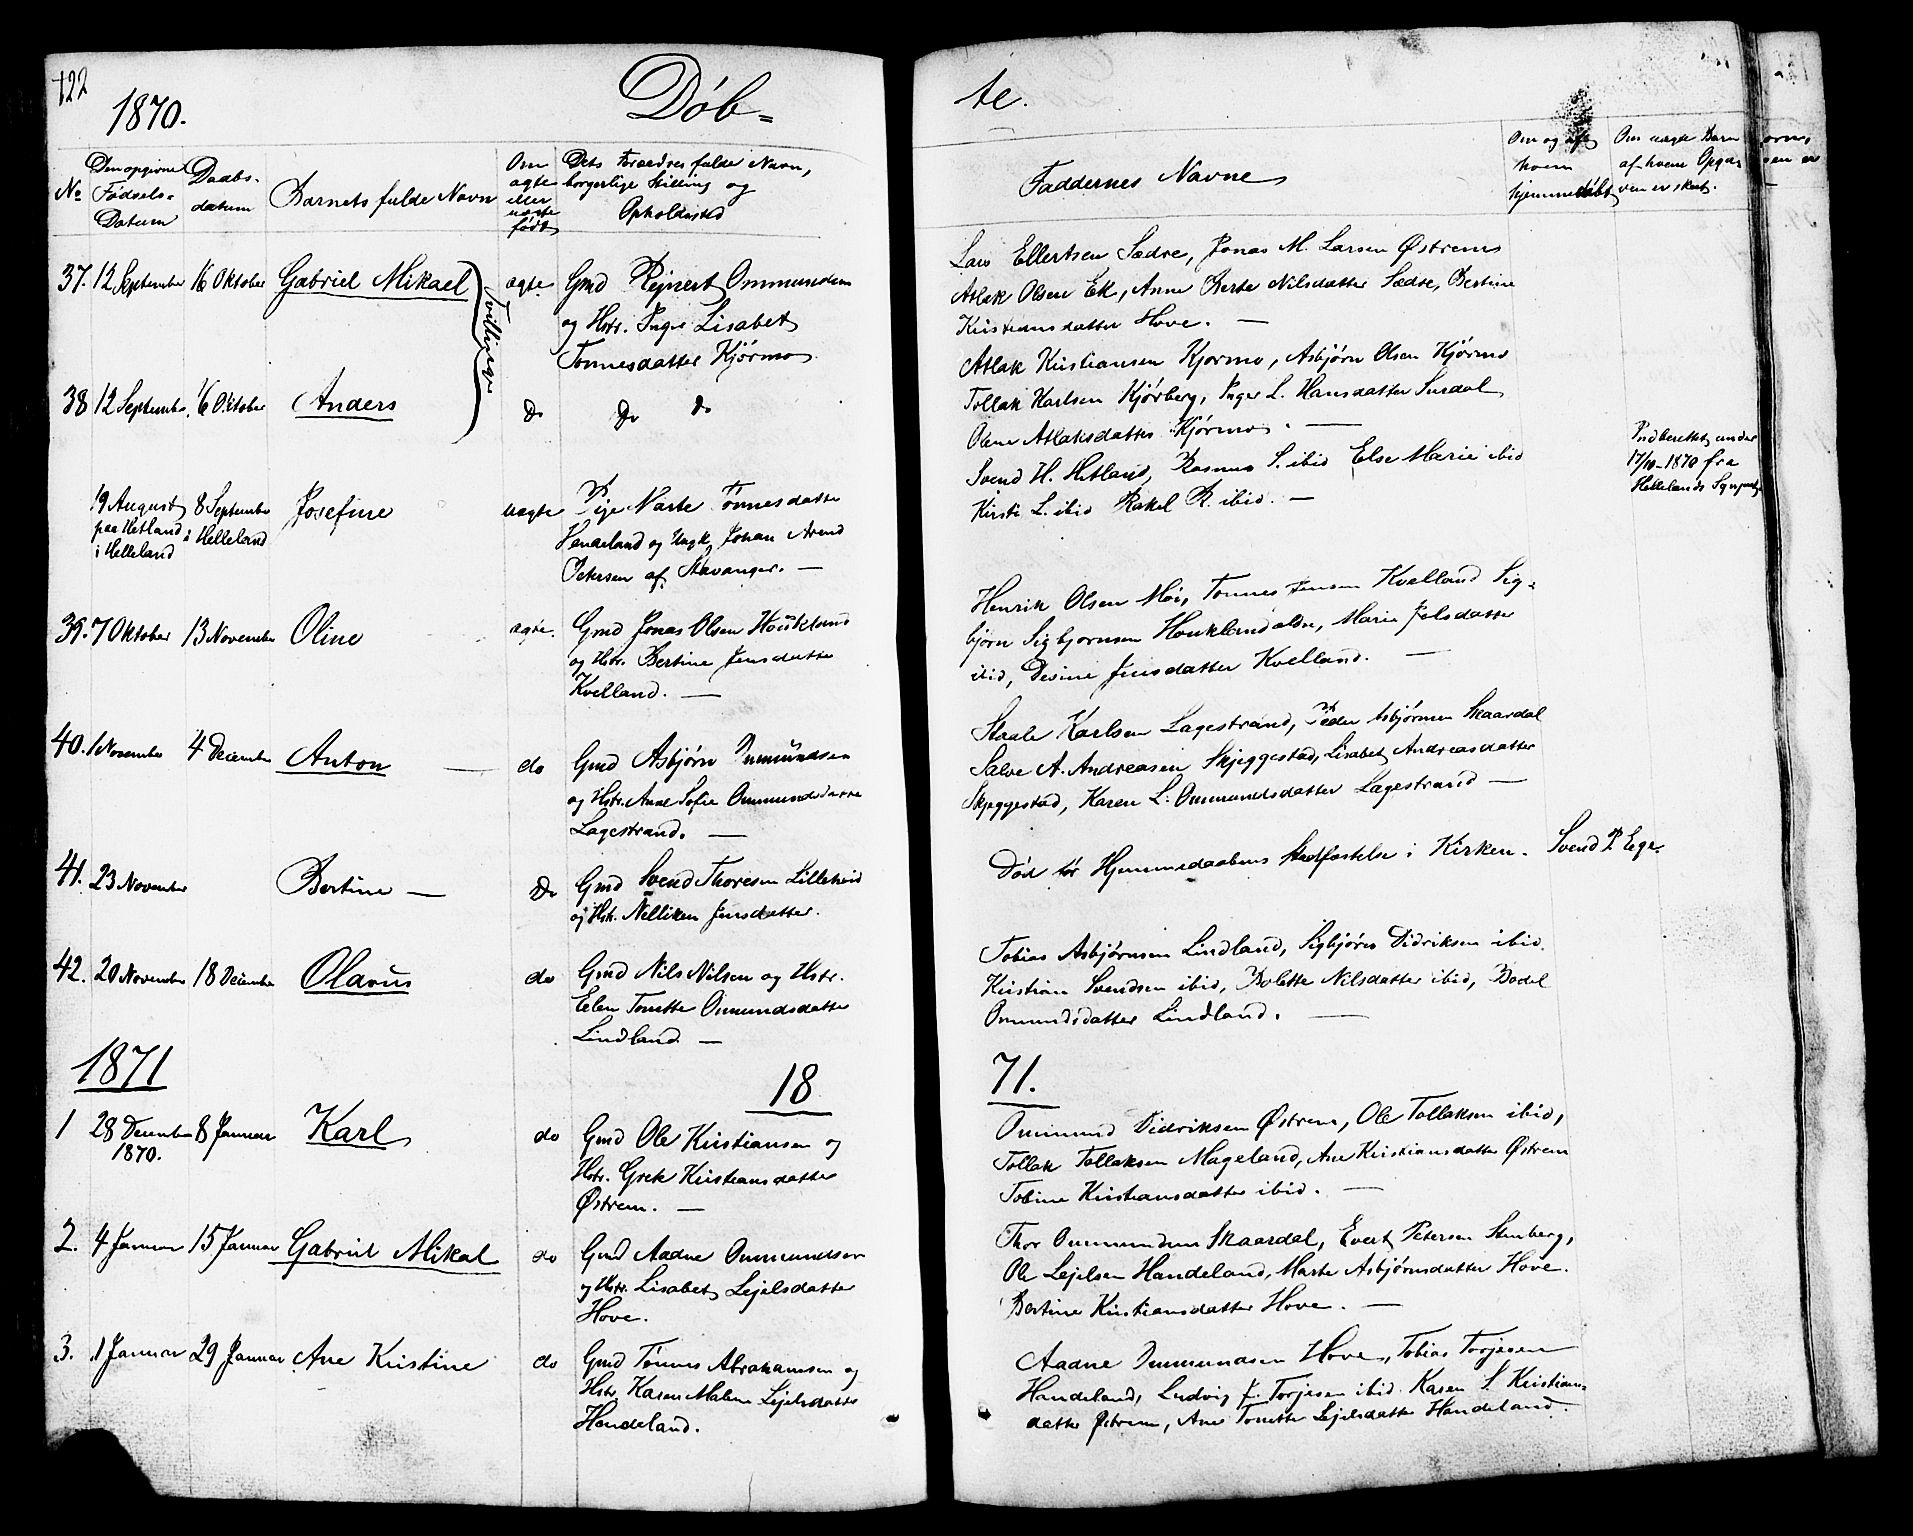 122
1870.
Døb-
te.
No
Den opgivne
Fødsels-
Datum
Daabs-
datum
Barnets fulde Navn
Om
ægte
eller
uægte
født
Dets Forældres fulde Navn,
borgerlige Stilling og
Opholdssted
Faddernes Navne
Om og af
hvem
hjemmedøbt
Om uægte Barn
af hvem Opga-
ven er skeet.
37. 12 September 16 Oktober Gabriel Mikael
Tvillinger
ægte
Gmd Rejnert Ommundsen
og Hstr. Inger Lisabet
Tønnesdatter Kjørmo
Lars Ellertsen Sædre, Jonas M. Larsen Østrem
Atlak Olsen Ek, Anne Berte Nilsdatter Sædre, Bertine
Kristiansdatter Hove. —
38 12 September 16 Oktober Anders
Do Do do
Atlak Kristiansen Kjørmo, Asbjørn Olsen Kjørmo
Tollak Karlsen Kjørberg, Inger L. Hansdatter Surdal
Olene Atlaksdatter Kjørmo. —
19 August
paa Hetland
i Helleland
8 September
i Helleland
Josefine
uægte
Pige Marte Tønnesdatter
Handeland og Ungk. Johan Arend
Petersen af Stavanger. —
Svend H. Hetland, Rasmus S. ibid Else Marie ibid
Kirsti L. ibid Rakel R. ibid. —
Indberettet under
17/10-1870 fra
Hellelands Sgnpræst
39. 7 Oktober 13 November Oline
ægte.
Gmd Jonas Olsen Houkland
og Hstr. Bertine Jensdatter
Kvelland. —
Henrik Olsen Moi, Tønnes Jensen Kvelland Sig-
bjørn Sigbjørnsen Houkland ældre, Marie Joelsdatter
ibid, Desine Jensdatter Kvelland. —
40. 1 November 4 December Anton —
do
Gmd Asbjørn Ommundsen
og Hstr. Ane Sofie Ommundsdatter
Lagestrand. —
Staale Karlsen Lagestrand, Peder Asbjørnsen Skaardal
Salve A. Andreasen Skjeggestad, Lisabet Andreasdatter
Skjeggestad, Karen L. Ommundsdatter Lagestrand —
41. 23 November Bertine —
Do
Gmd Svend Thoresen Lilleheid
og Hstr. Nelliken Jensdatter.
Død før Hjemmedaabens Stadfæstelse i Kirken.
Svend P. Ege.
42. 20 November 18 December Olavus
do
Gmd Nils Nilsen og Hstr.
Elen Tonette Ommundsdatter
Lindland —
Tobias Asbjørnsen Lindland, Sigbjørn Didriksen ibid.
Kristian Svendsen ibid, Bolette Nilsdatter ibid, Bodel
Ommundsdatter Lindland. —
1871
18
71.
1 28 December
1870.
8 Januar Karl
do
Gmd Ole Kristiansen og
Hstr. Grete Kristiansdatter
Østrem. —
Ommund Didriksen Østrem, Ole Tollaksen ibid,
Tollak Tollaksen Mageland, Ane Kristiansdatter Østrem
Tobine Kristiansdatter ibid. —
2. 4 Januar 15 Januar Gabriel Mikal
do
Gmd Aadne Ommundsen
og Hstr. Lisabet Lejelsdatter
Hove.
Thor Ommundsen Skaardal, Evert Petersen Stenberg,
Ole Lejelsen Handeland, Marte Asbjørnsdatter Hove.
Bertine Kristiansdatter Hove. —
3. 1 Januar 29 Januar Ane Kristine
do
Gmd Tønnes Abrahamsen og
Hstr. Karen Malene Lejelsdatter
Handeland.
Aadne Ommundsen Hove, Tobias Torjesen
Handeland, Ludvig J. Torjesen ibid. Karen S. Kristians-
datter Østrem, Ane Tonette Lejelsdatter Handeland. —